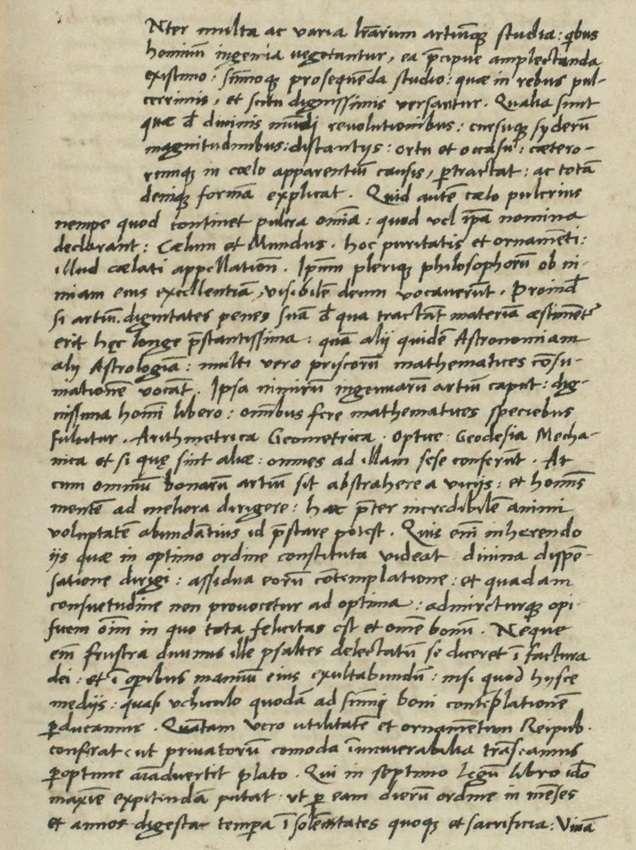 Nter multa ac varia lrarum artiumque studia: qibus
hominum ingenia vegetantur, ea praecipue amplectanda
existimo: summoque prosequenda studio: quae in rebus pul-
cerrimis, et scitu dignissimis versantur. Qualia sunt
quae de divinis mundi revolutionibus: cursuque syderum
magnitudinibus: distantijs: ortu et occasu: caetero-
rumque in coelo apparentium causis, pertractat: ac totam
denique formam explicat. Quid autem caelo pulcrius
nempe quod continet pulcra omnia: quod vel ipsa nomina
declarant: Caelum et Mundus. hoc puritatis et ornamenti:
illud caelati appellatione. Ipsum plerique philosophorum ob ni-
miam eius excellentiam, visibilem deum vocaverunt. Proinde
si artium dignitates penes suam de qua tractant materiam aestimentur
erit hęc longe praestantissima: quam alij quidem Astronomiam
alij Astrologiam: multi vero priscorum mathematices consu-
mationem vocant. Ipsa nimirum ingenuarum artium caput: dig-
nissima homine libero: omnibus fere mathematices speciebus
fulcitur. Arithmetrica Geometrica. Optice: Geodesia Mecha-
nica et si quę sint aliae: omnes ad illam sese conferunt. At
cum omnium bonarum artium sit abstrahere a vicijs: et hominis
mentem ad meliora dirigere: haec praeter incredibilem animi
voluptatem abundantius id praestare potest. Quis enim inherendo
ijs quae in optimo ordine constituta videat divina dispen-
satione dirigi: assidua eorum contemplatione: et quadam
consuetudine non provocetur ad optima: admireturque opi-
ficem omnium in quo tota felicitas est et omne bonum. Neque
enim frustra divinus ille psaltes delectatum se diceret in factura
dei: et in operibus manuum eius exultabundum: nisi quod hysce
medijs: quasi vehiculo quodam ad summi boni contemplationem
perducamur. Quantam vero utilitatem et ornamentum Reipub.
conferat: ut privatorum comoda innumerabilia transeamus
peroptime animadvertit plato. Qui in septimo legum libro ideo
maxime expetendam putat ut per eam dierum ordine in menses
et annos digesta tempora in solennitates quoque et sacrificia: Vivam